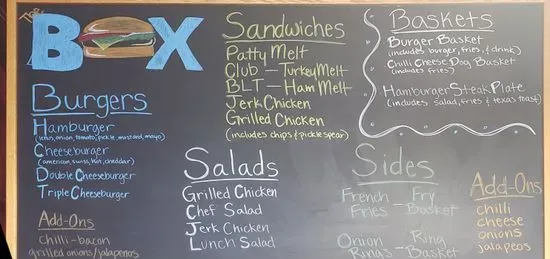 The
BOX
Burgers
Hamburger
(lettus, onion, tomato, pickle, mustard, mayo)
Cheeseburger
(american, swiss, hot, cheddar)
Double Cheeseburger
Triple Cheeseburger
Add-Ons
chilli - bacon
grilled onions/jalapenos
Sandwiches
Patty Melt
Club - Turkey Melt
BLT - Ham Melt
Jerk Chicken
Grilled Chicken
(includes chips & pickle spear)
Salads
Grilled Chicken
Chef Salad
Jerk Chicken
Lunch Salad
Baskets
Burger Basket
(includes burger, fries, & drink)
Chilli Cheese Dog Basket
(includes fries)
Hamburger Steak Plate
(includes salad, fries & texas toast)
Sides
French Fries - Fry Basket
Onion Rings - Ring Basket
Add-Ons
chilli
cheese
onions
jalapeos